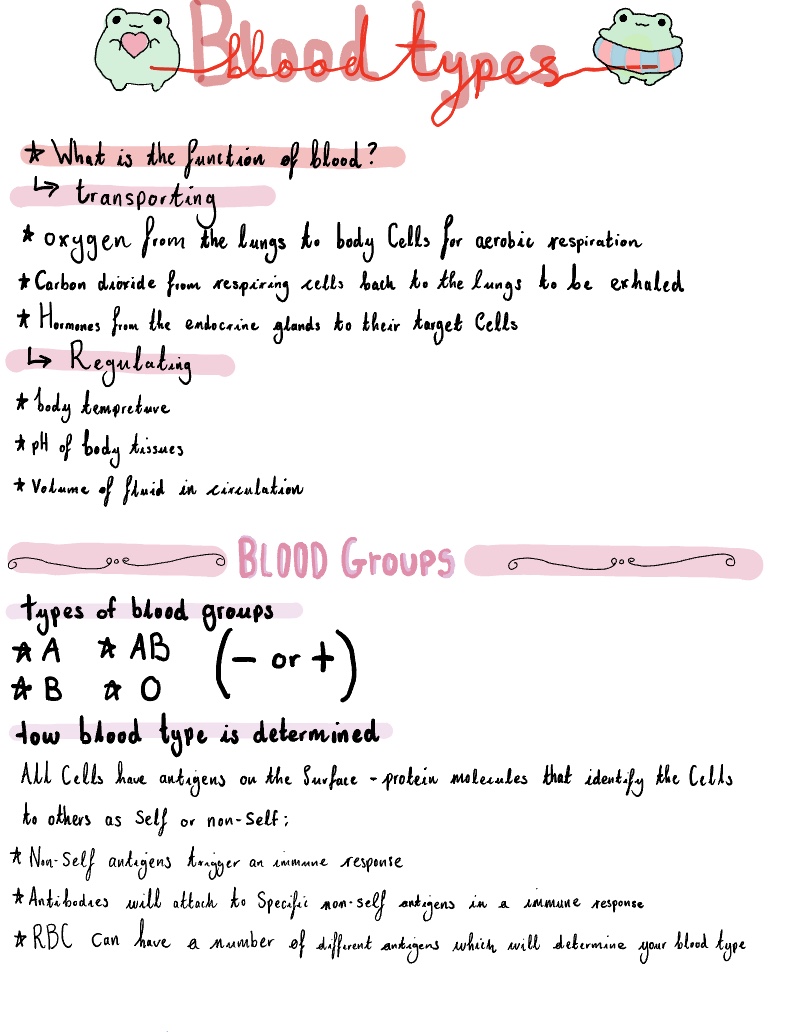 Blood types
★ What is the function of blood?
↳ transporting
★ oxygen from the lungs to body Cells for aerobic respiration
★ Carbon dioxide from respiring cells back to the lungs to be exhaled
★ Hormones from the endocrine glands to their target Cells
↳ Regulating
★ body tempreture
★ pH of body tissues
★ Volume of fluid in circulation
BLOOD Groups
types of blood groups
★ A ★ AB (- or +)
★ B ★ O
How blood type is determined
All Cells have antigens on the Surface - protein molecules that identify the Cells
to others as Self or non-Self;
★ Non-Self antigens trigger an immune response
★ Antibodies will attach to Specific non-self antigens in a immune response
★ RBC Can have a number of different antigens which will determine your blood type